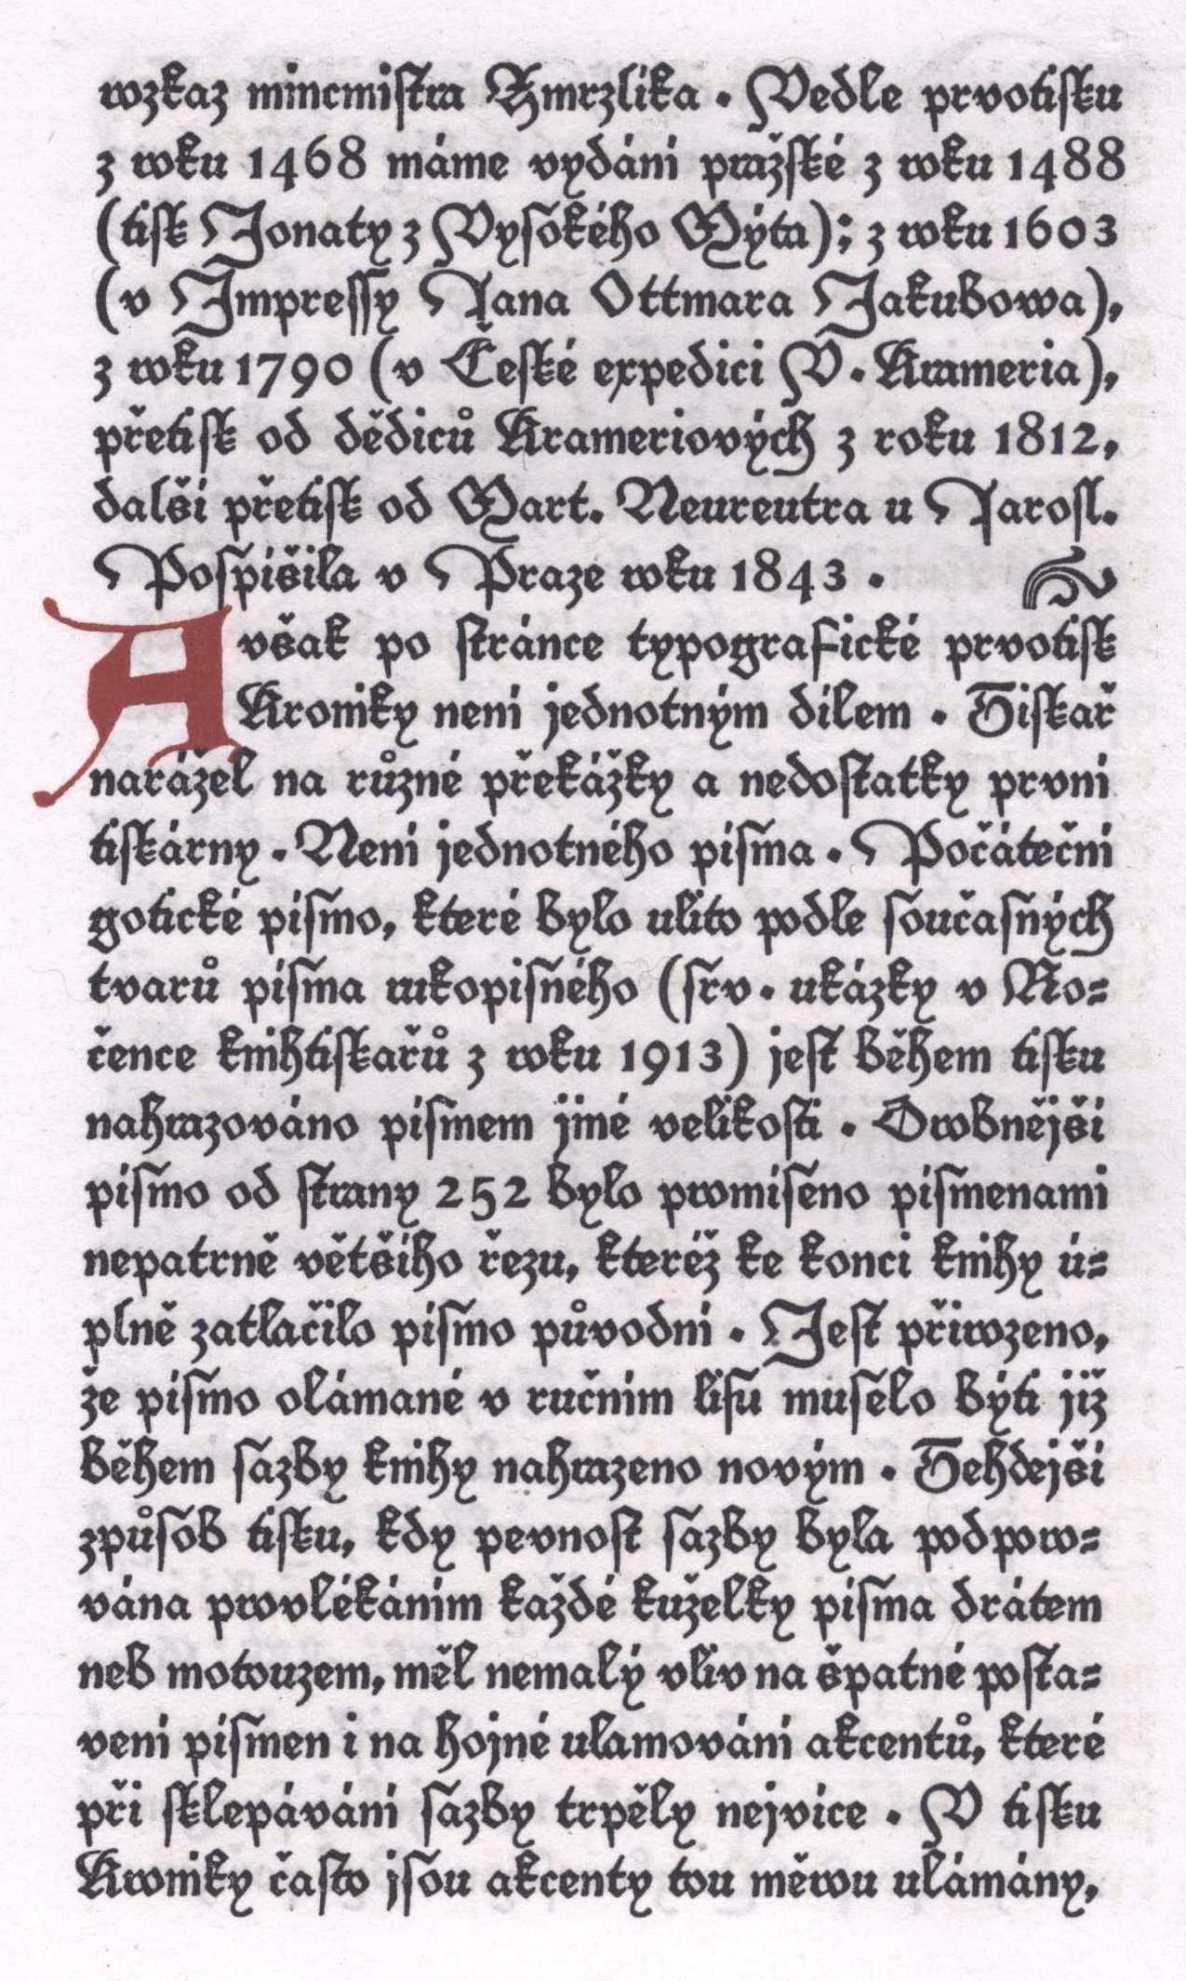 rozkaz mincmistra Zmrzlíka . Vedle prvotisku
z roku 1468 máme vydání pražské z roku 1488
(tisk Jonaty z Vysokého Mýta); z roku 1603
(v Impressy Jana Ottmara Jakubowa),
z roku 1790 (v České expedici V. Krameria),
přetisk od dědiců Krameriových z roku 1812,
další přetisk od Mart. Neureutra u Jarosl.
Pospíšila v Praze roku 1843 .
Avšak po stránce typografické prvotisk
Kroniky není jednotným dílem . Tiskař
narážel na různé překážky a nedostatky první
tiskárny . Není jednotného písma . Počáteční
gotické písmo, které bylo ulito podle současných
tvarů písma rukopisného (srv. ukázky v Ro=
čence knihtiskařů z roku 1913) jest během tisku
nahrazováno písmem jiné velikosti . Drobnější
písmo od strany 252 bylo promíseno písmenami
nepatrně většího řezu, kteréž ke konci knihy ú=
plně zatlačilo písmo původní . Jest přirozeno,
že písmo olámané v ručním lisu muselo býti již
během sazby knihy nahrazeno novým . Tehdejší
způsob tisku, kdy pevnost sazby byla podporo=
vána provlékáním každé kuželky písma drátem
neb motouzem, měl nemalý vliv na špatné posta=
vení písmen i na hojné ulamování akcentů, které
při sklepávání sazby trpěly nejvíce . V tisku
Kroniky často jsou akcenty tou měrou ulámány,